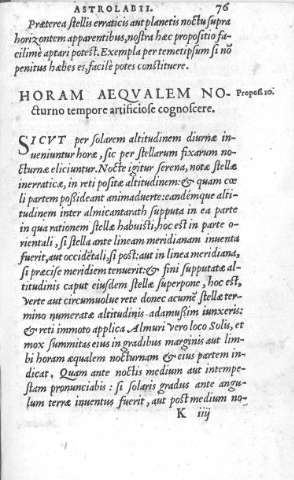 ASTROLABII. 76
Præterea stellis erraticis aut planetis noctu supra
horizontem apparentibus, nostra hæc propositio fa-
cilimè aptari potest. Exempla per temetipsum si nō
penitus hæbes es, facilè potes constituere.
HORAM AEQVALEM NO- Proposi.20.
cturno tempore artificiose cognoscere.
SICVT per solarem altitudinem diurnæ in-
ueniuntur horæ, sic per stellarum fixarum no-
cturnæ eliciuntur. Nocte igitur serena, notæ stellæ
inerraticæ, in reti positæ altitudinem: & quam cœ
li partem possideant animaduerte: eandémque alti-
tudinem inter almicantarath supputa in ea parte
in qua rationem stellæ habuisti, hoc est in parte o-
rientali, si stella ante lineam meridianam inuenta
fuerit, aut occidētali, si post: aut in linea meridiana,
si præcise meridiem tenuerit: & fini supputatæ al-
titudinis caput eiusdem stellæ superpone, hoc est,
verte aut circumuolue rete donec acumē stellæ ter-
mino numeratæ altitudinis adamußim iunxeris:
& reti immoto applica Almuri vero loco Solis, et
mox summitas eius in gradibus marginis aut lim-
bi horam æqualem nocturnam & eius partem in-
dicat. Quam ante noctis medium aut intempe-
stam pronunciabis: si solaris gradus ante angu-
lum terræ inuentus fuerit, aut post medium no-
K iiij